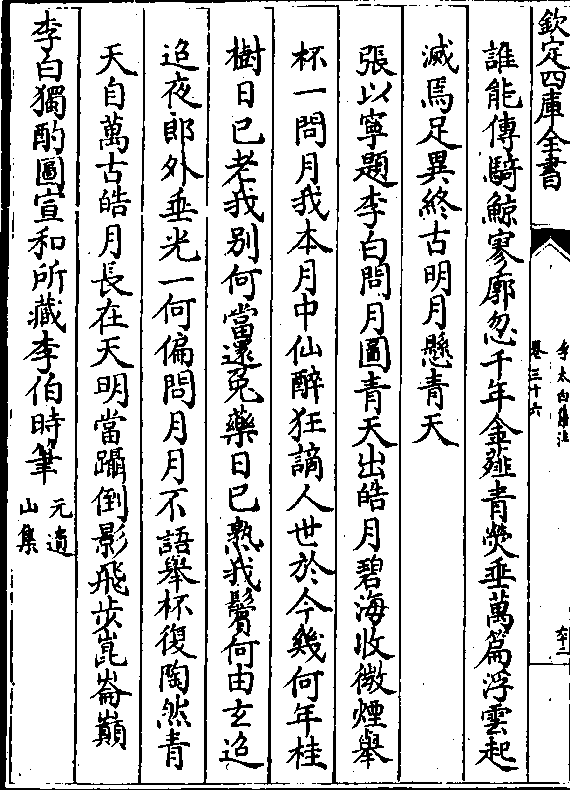 欽定四庫全書
李太白集注
卷三十六
誰能傳騎鯨寥廓忽千年金薤青熒垂萬篇浮雲起
滅焉足異終古明月懸青天
張以寧題李白問月圖青天出皓月碧海收微煙舉
杯一問月我本月中仙醉狂謫人世於今幾何年桂
樹日已老我別何當還兔藥日已熟我鬢何由玄迢
迢夜郎外垂光一何偏問月月不語舉杯復陶然青
天自萬古皓月長在天明當躡倒影飛步崑崙巔
李白獨酌圖宣和所藏李伯時筆
元遺
山集